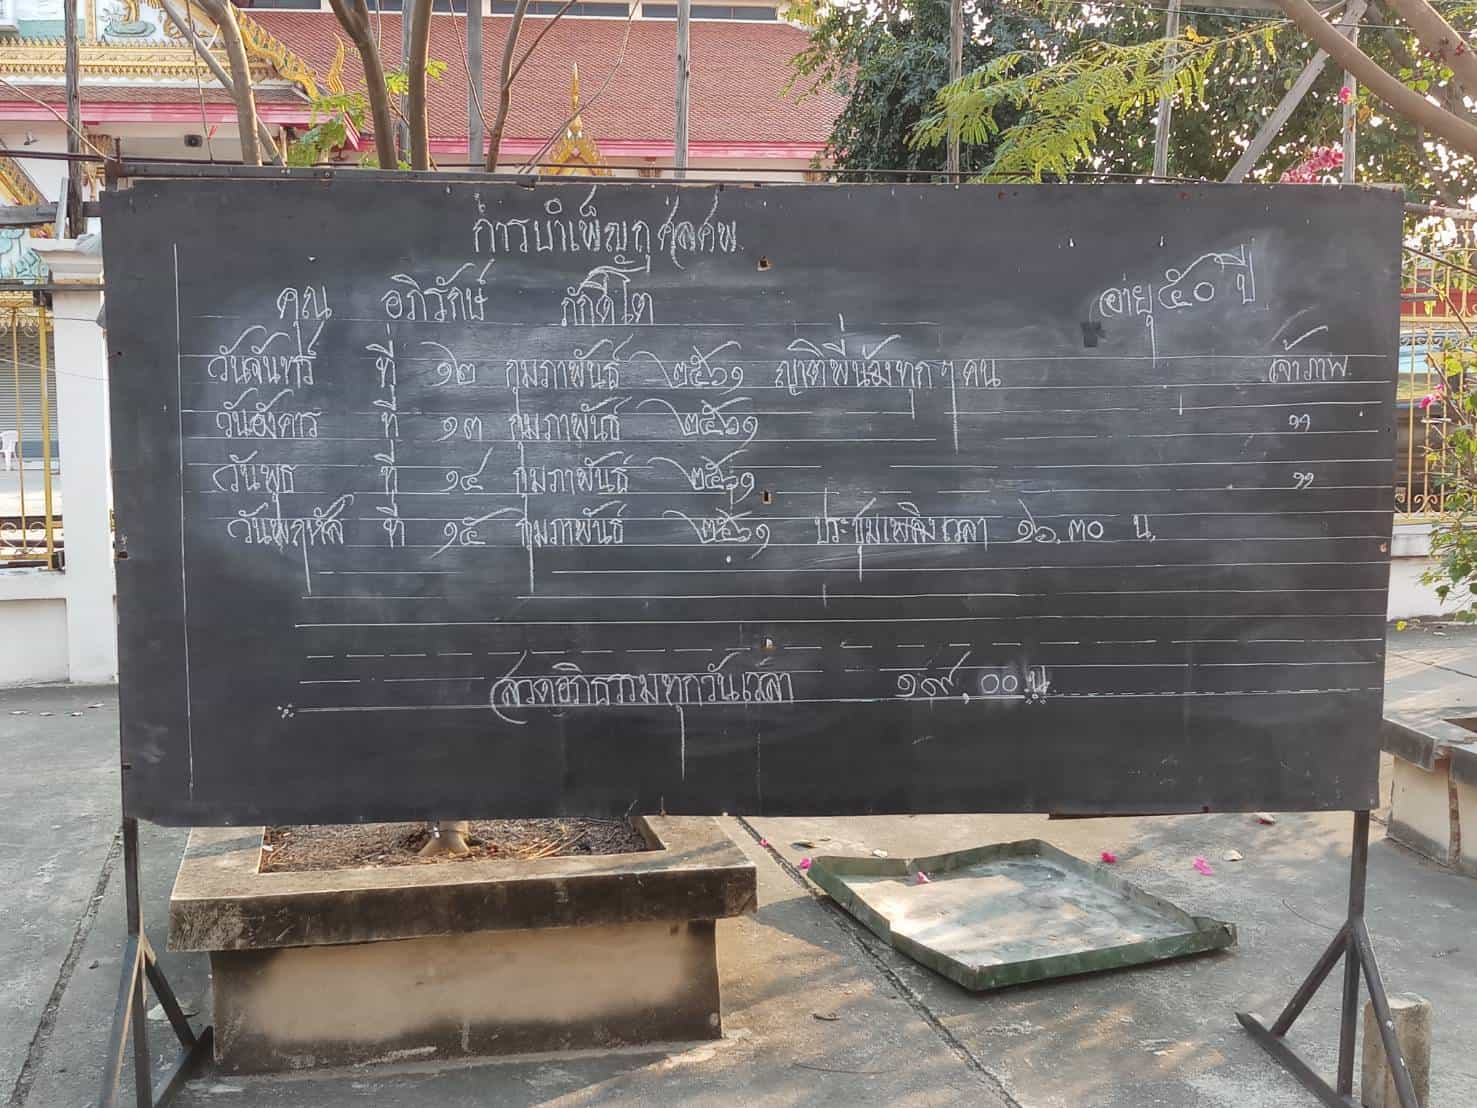 การบำเพ็ญกุศลศพ
คุณ อภิรักษ์ ภักดีโต อายุ ๕๐ ปี
วันจันทร์ ที่ ๑๒ กุมภาพันธ์ ๒๕๖๑ ญาติพี่น้องทุกๆคน เจ้าภาพ
วันอังคาร ที่ ๑๓ กุมภาพันธ์ ๒๕๖๑ "
วันพุธ ที่ ๑๔ กุมภาพันธ์ ๒๕๖๑ "
วันพฤหัส ที่ ๑๕ กุมภาพันธ์ ๒๕๖๑ ประชุมเพลิงเวลา ๑๖.๓๐ น.
สวดอภิธรรมทุกวันเวลา ๑๙.๐๐ น.